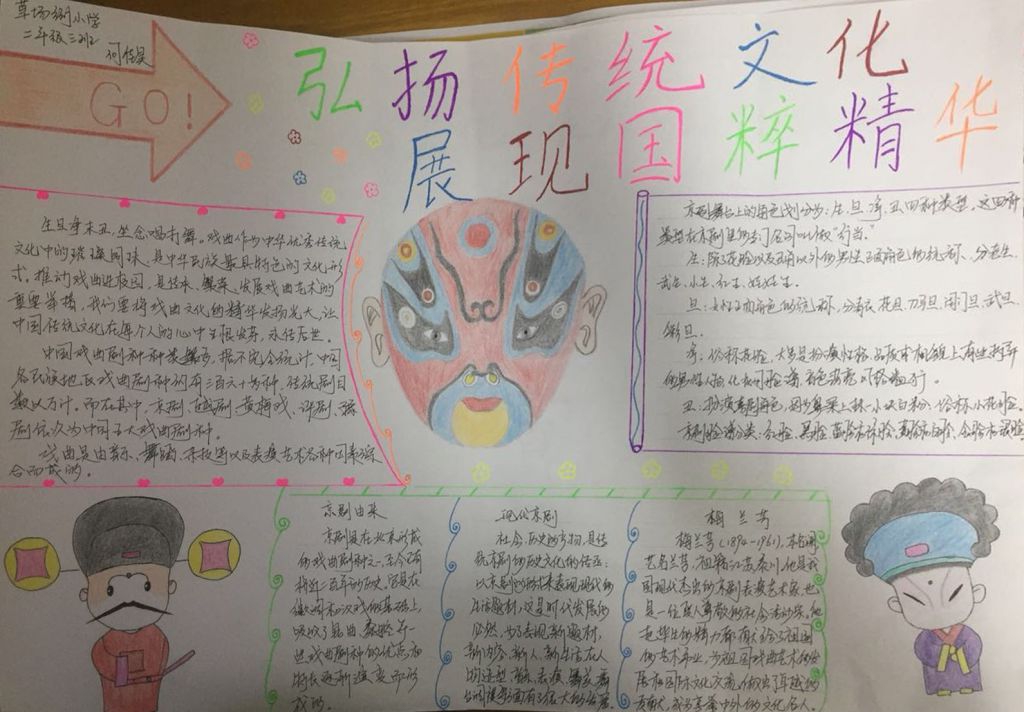 草场
小学
二年级三班
GO!
弘扬传统文化
展现国粹精华
生旦净末丑,坐念唱打舞。戏曲作为中华优秀传统
文化中的璀璨明珠,是中华民族最具特色的文化形
式。推动戏曲进校园,是传承、繁荣、发展戏曲艺术的
重要举措,我们要将戏曲文化的精华发扬光大,让
中国传统文化在每个人的心中生根发芽,永传后世。
中国戏曲剧种种类繁多,据不完全统计,中国
各民族地区戏曲剧种约有三百六十多种,传统剧目
数以万计。而在其中,京剧、越剧、黄梅戏、评剧、豫
剧依次为中国五大戏曲剧种。
戏曲是由音乐、舞蹈、
以及表演艺术各种因素综
合而成的。
京剧舞台上的角色划分为:生、旦、净、丑四种类型,这四种
类型在京剧里的专门名词叫做“行当。”
生:除了花脸以及丑角以外的男性正面角色的统称,分老生、
武生、小生、红生、娃娃生。
旦:女性正面角色的统称,分青衣、花旦、刀马旦、闺门旦、武旦、
彩旦。
净:俗称花脸,大多是扮演性格、品质或相貌上有些特异
的男性人物,化妆用脸谱,音色洪亮,风格粗犷。
丑:扮演喜剧角色,因为鼻梁上抹一小块白粉,俗称小花脸。
京剧由来
京剧是在北京形成
的戏曲剧种之一,至今已有
将近二百年的历史,它是在
徽调和汉戏的基础上,
吸收了昆曲、秦腔等一
些戏曲剧种的优点和
特长逐渐演变而形
成的。
现代京剧
社会、历史的产物,是传
统京剧的历史文化的传承;
以京剧的艺术表现现代的
生活题材,这是时代发展的
必然,为了表现新题材、
新内容、新人、新生活在人
物造型、音乐、表演、舞台美
梅兰芳
梅兰芳(1894-1961),本名澜,
艺名兰芳,祖籍江苏泰州,他是我
国现代杰出的京剧表演艺术家,也
是一位受人尊敬的社会活动家。他
把毕生的精力都献给了祖国
的艺术事业,为祖国戏曲艺术的发
展和国际文化交流,做出了卓越的
贡献,成为享誉中外的文化名人。